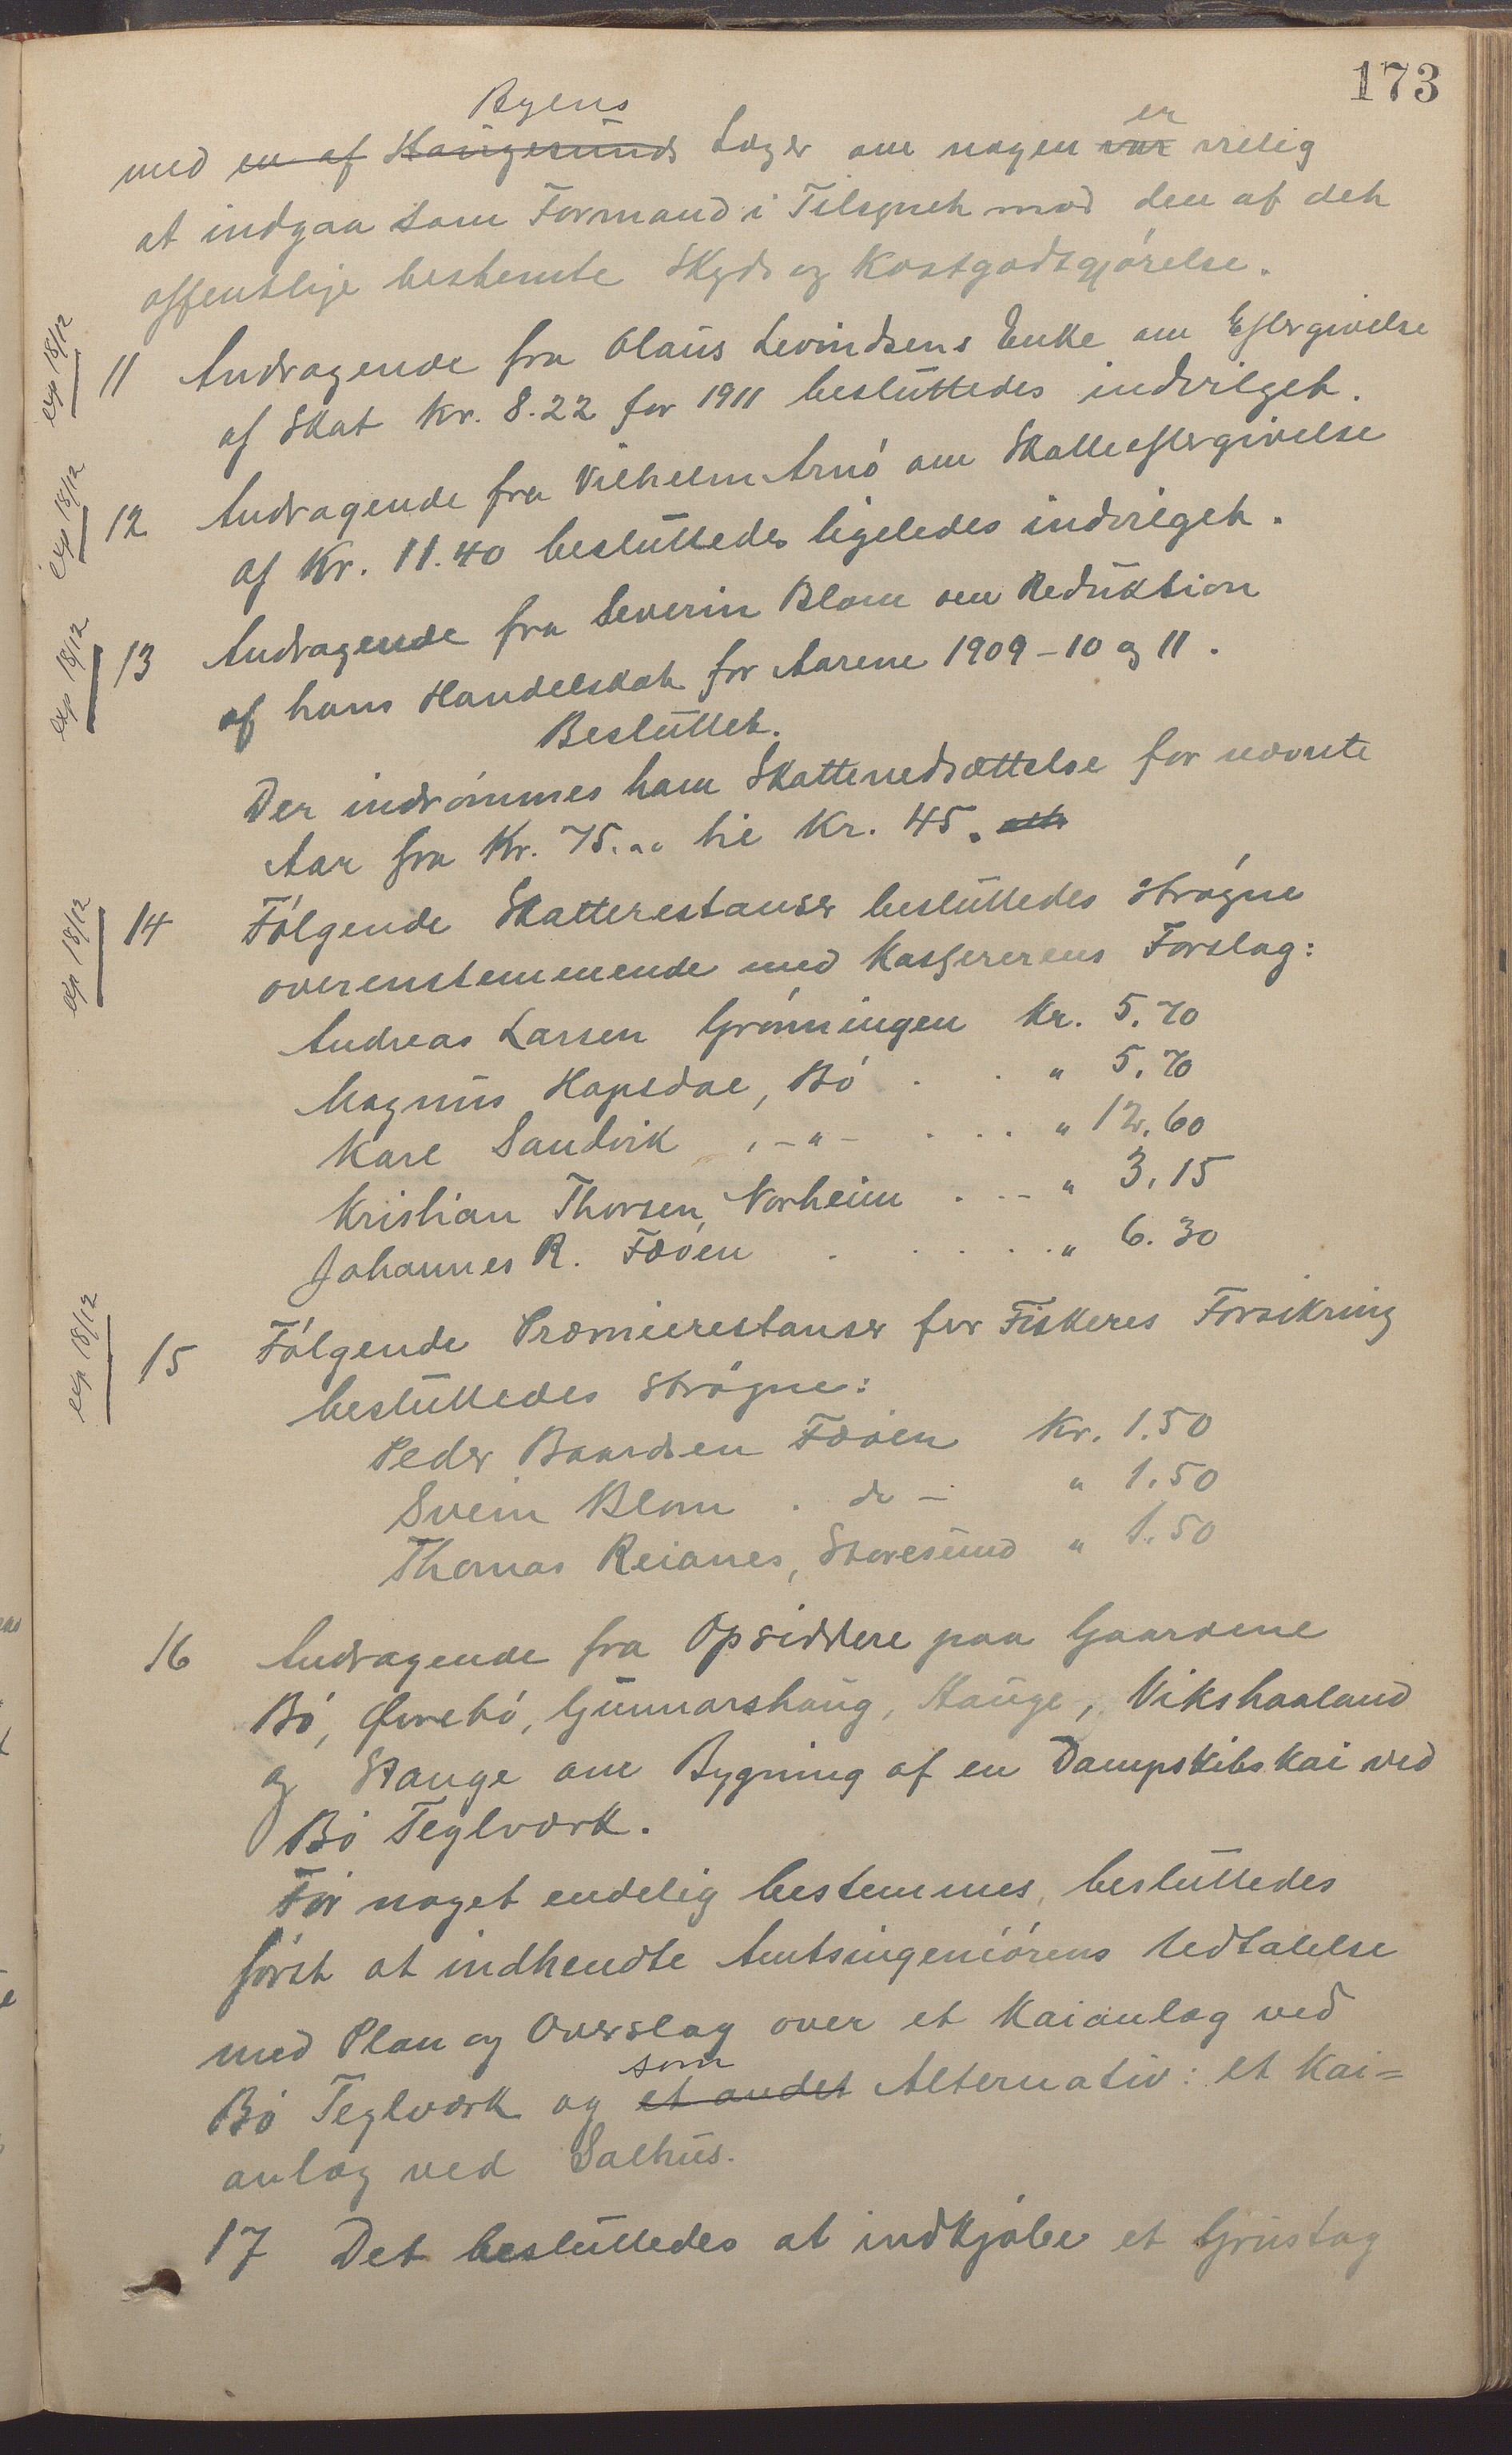 173
Byens
er
med en af Haugesunds Læger om nogen var villig
at indgaa som Formand i Tilsynet mod den af det
offentlige bestemte Skyds og Kostgodtgjørelse.
exp 18/12
11 Andragende fra Olaus Levindsens Enke om Eftergivelse
af Skat Kr. 8.22 for 1911 besluttedes indvilget.
exp 18/12
12 Andragende fra Vilhelm Arnø om Skatteeftergivelse
af Kr. 11.40 besluttedes ligeledes indvilget.
exp 18/12
13 Andragende fra Severin Blom om Reduktion
af hans Handelskat for Aarene 1909-10 og 11.
Besluttet.
Der indrømmes ham Skattenedsættelse for nævnte
Aar fra Kr. 75.00 til Kr. 45.
exp 18/12
14 Følgende Skatterestanser besluttedes strøgne
overenstemmende med Kassererens Forslag:
Andreas Larsen Grønningen Kr. 5.70
Magnus Hapsdal, Bø . . " 5.70
Karl Sandvik , -"- . . . " 12.60
Kristian Thorsen, Norheim . . - " 3.15
Johannes R. Fæøen . . . . . " 6.30
exp 18/12
15 Følgende Præmierestanser for Fiskeres Forsikring
besluttedes strøgne:
Peder Baardsen Fæøen Kr. 1.50
Svein Blom . do - " 1.50
Thomas Reianes, Storesund " 1.50
16 Andragende fra Opsiddere paa Gaardene
Bø, Øvrebø, Gunnarshaug, Hauge, Vikshaaland
og Stange om Bygning af en Dampskibskai ved
Bø Teglværk.
Før noget endelig bestemmes, besluttedes
først at indhendte Amtsingeniørens Udtalelse
med Plan og Overslag over et Kaianlæg ved
som
Bø Teglværk og et andet Alternativ: et Kai=
anlæg ved Salhus.
17 Det besluttedes at indkjøbe et Grustag